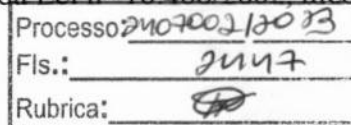 Processo: 2407002/2023
Fls.: 2447
Rubrica: